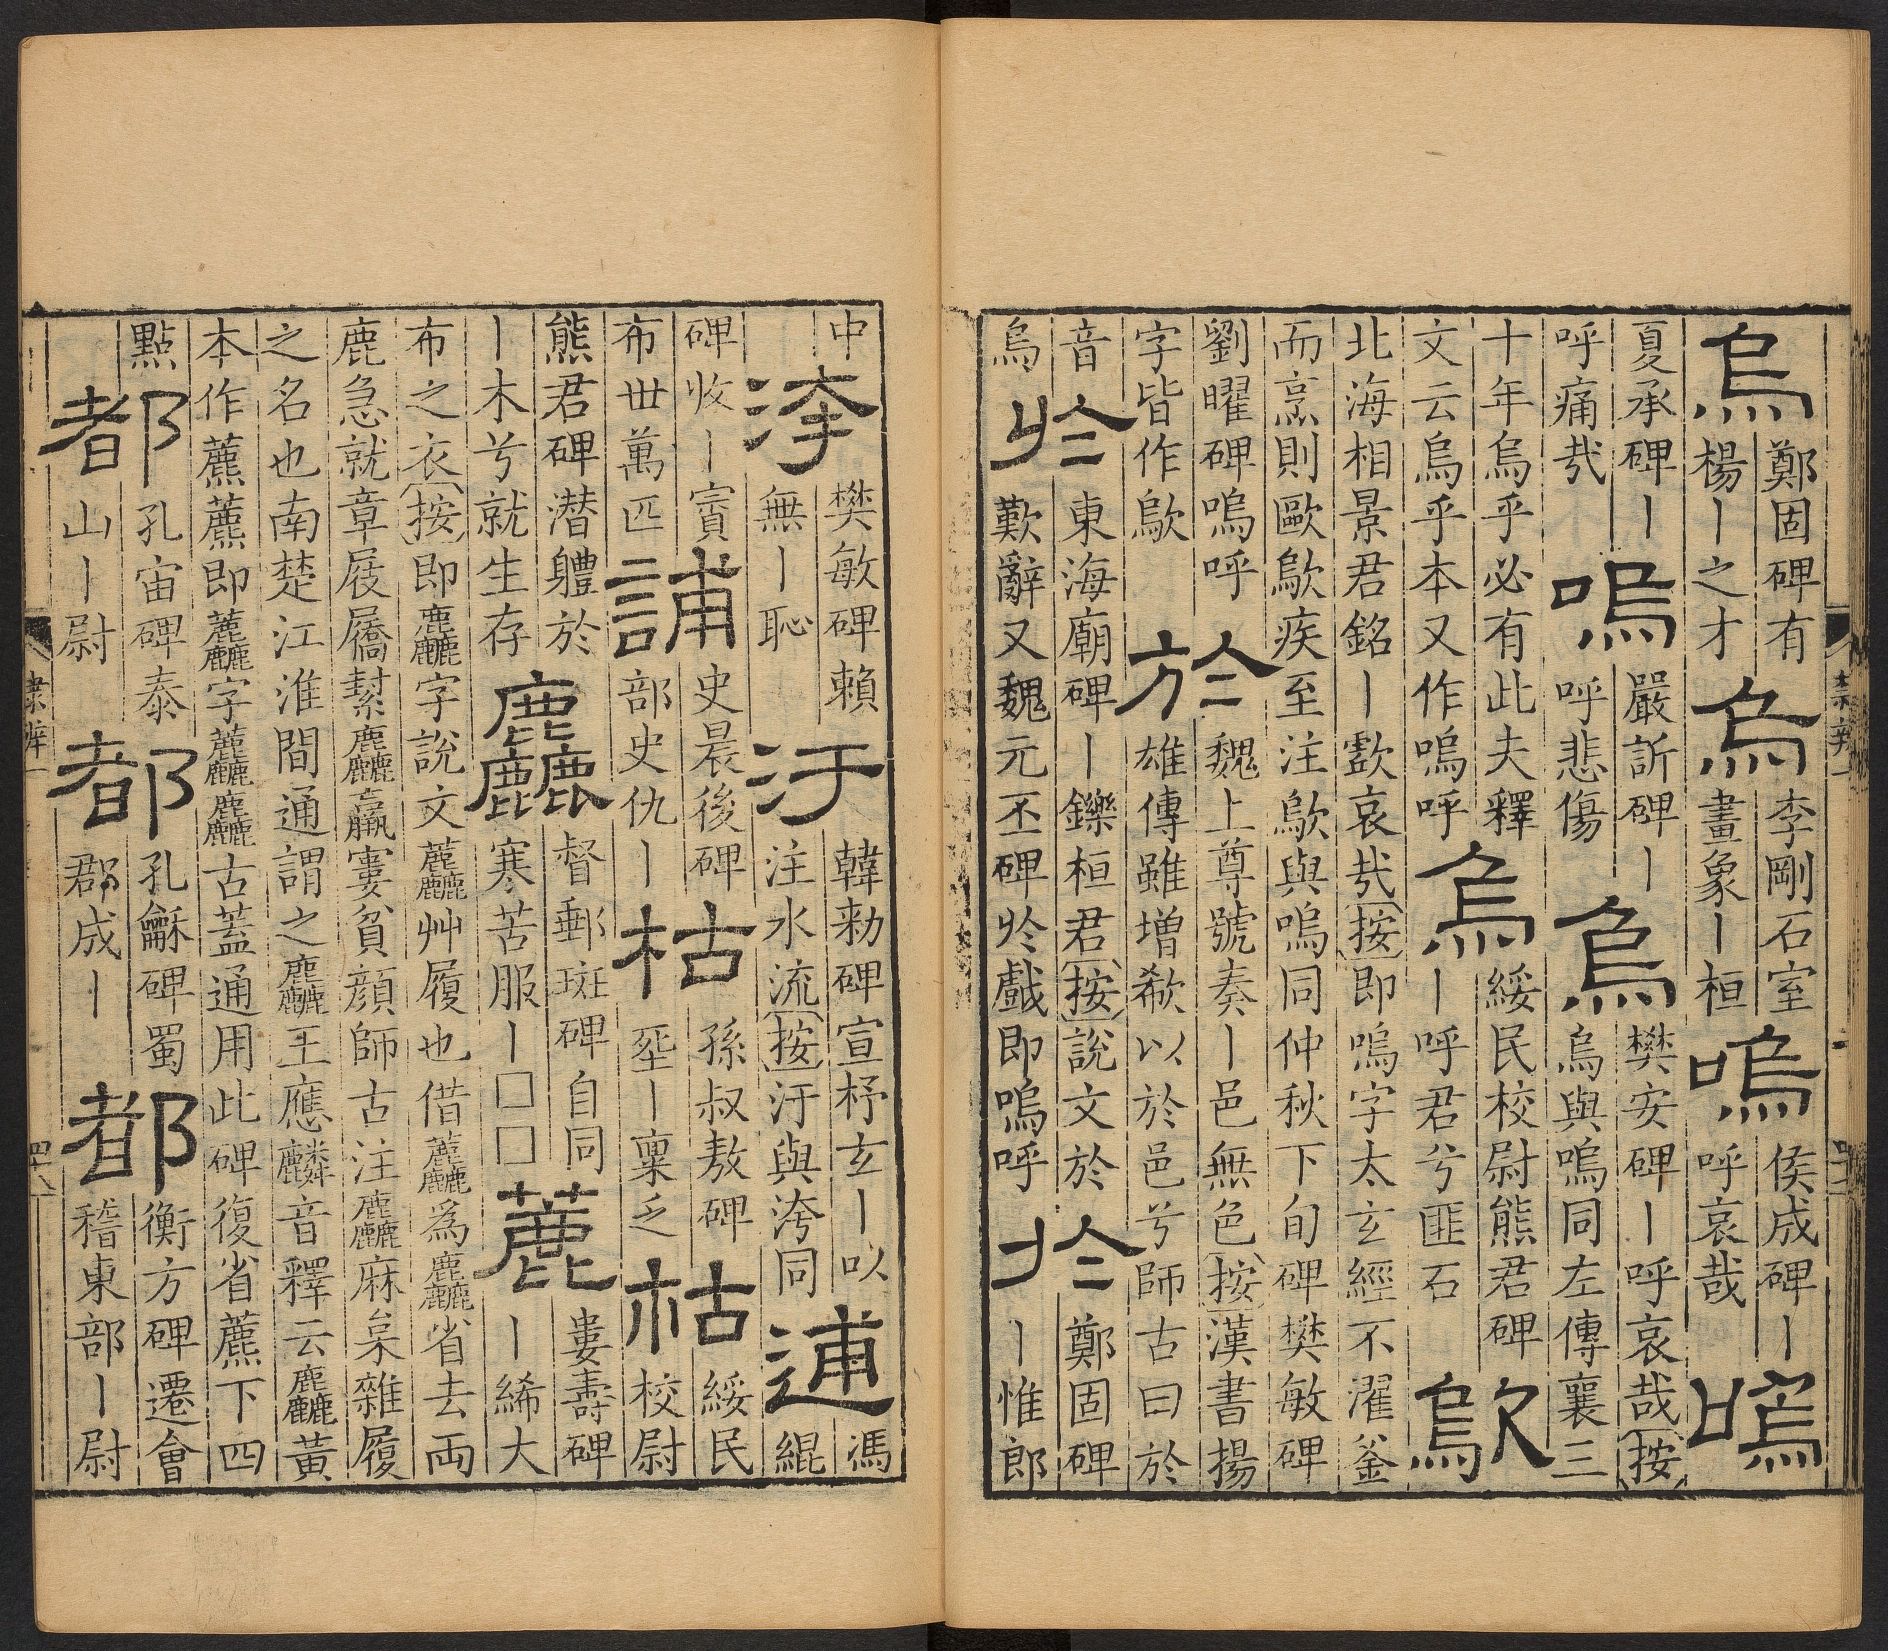 烏
鄭固碑有
楊丨之才
烏
李剛石室
畫象丨桓
嗚
侯成碑丨
呼哀哉
嗚
夏承碑丨
呼痛㢤
嗚
嚴訢碑丨
呼悲傷
烏
樊安碑丨呼哀哉按
烏與嗚同左傳襄三
十年烏乎必有此夫釋
文云烏乎本又作嗚呼
烏
綏民校尉熊君碑
丨呼君兮匪石
歍
北海相景君銘丨歔哀㢤按即嗚字太玄經不濯釜
而烹則歐歍疾至注歍與嗚同仲秋下旬碑樊敏碑
劉曜碑嗚呼
字皆作歍
於
魏上尊號奏丨邑無色按漢書揚
雄傳雖增欷以於邑兮師古曰於
音
烏
於
東海廟碑丨鑠桓君按說文於
歎辭又魏元丕碑於戲即嗚呼
於
鄭固碑
丨惟郎
隸辨一
中
洿
樊敏碑賴
無丨恥
汙
韓勑碑宣杼玄丨以
注水流按汙與洿同
逋
馮
緄
碑收丨賨
布丗萬匹
誧
史晨後碑
部史仇丨
枯
孫叔敖碑
埊丨稟乏
枯
綏民
校尉
熊君碑潛軆於
丨木兮就生存
麤
督郵斑碑自同
寒苦服丨□□
蔍
婁壽碑
丨絺大
布之衣按即麤字說文𧆓艸履也借𧆓為麤省去両
鹿急就章屐屩䋈麤羸窶貧顔師古注麤麻枲雜履
之名也南楚江淮間通謂之麤王應麟音釋云麤黃
本作藨藨即𧆓字𧆓麤古蓋通用此碑復省藨下四
點
都
孔宙碑泰
山丨尉
都
孔龢碑蜀
郡成丨
都
衡方碑遷會
稽東部丨尉
隸辨一
四十八